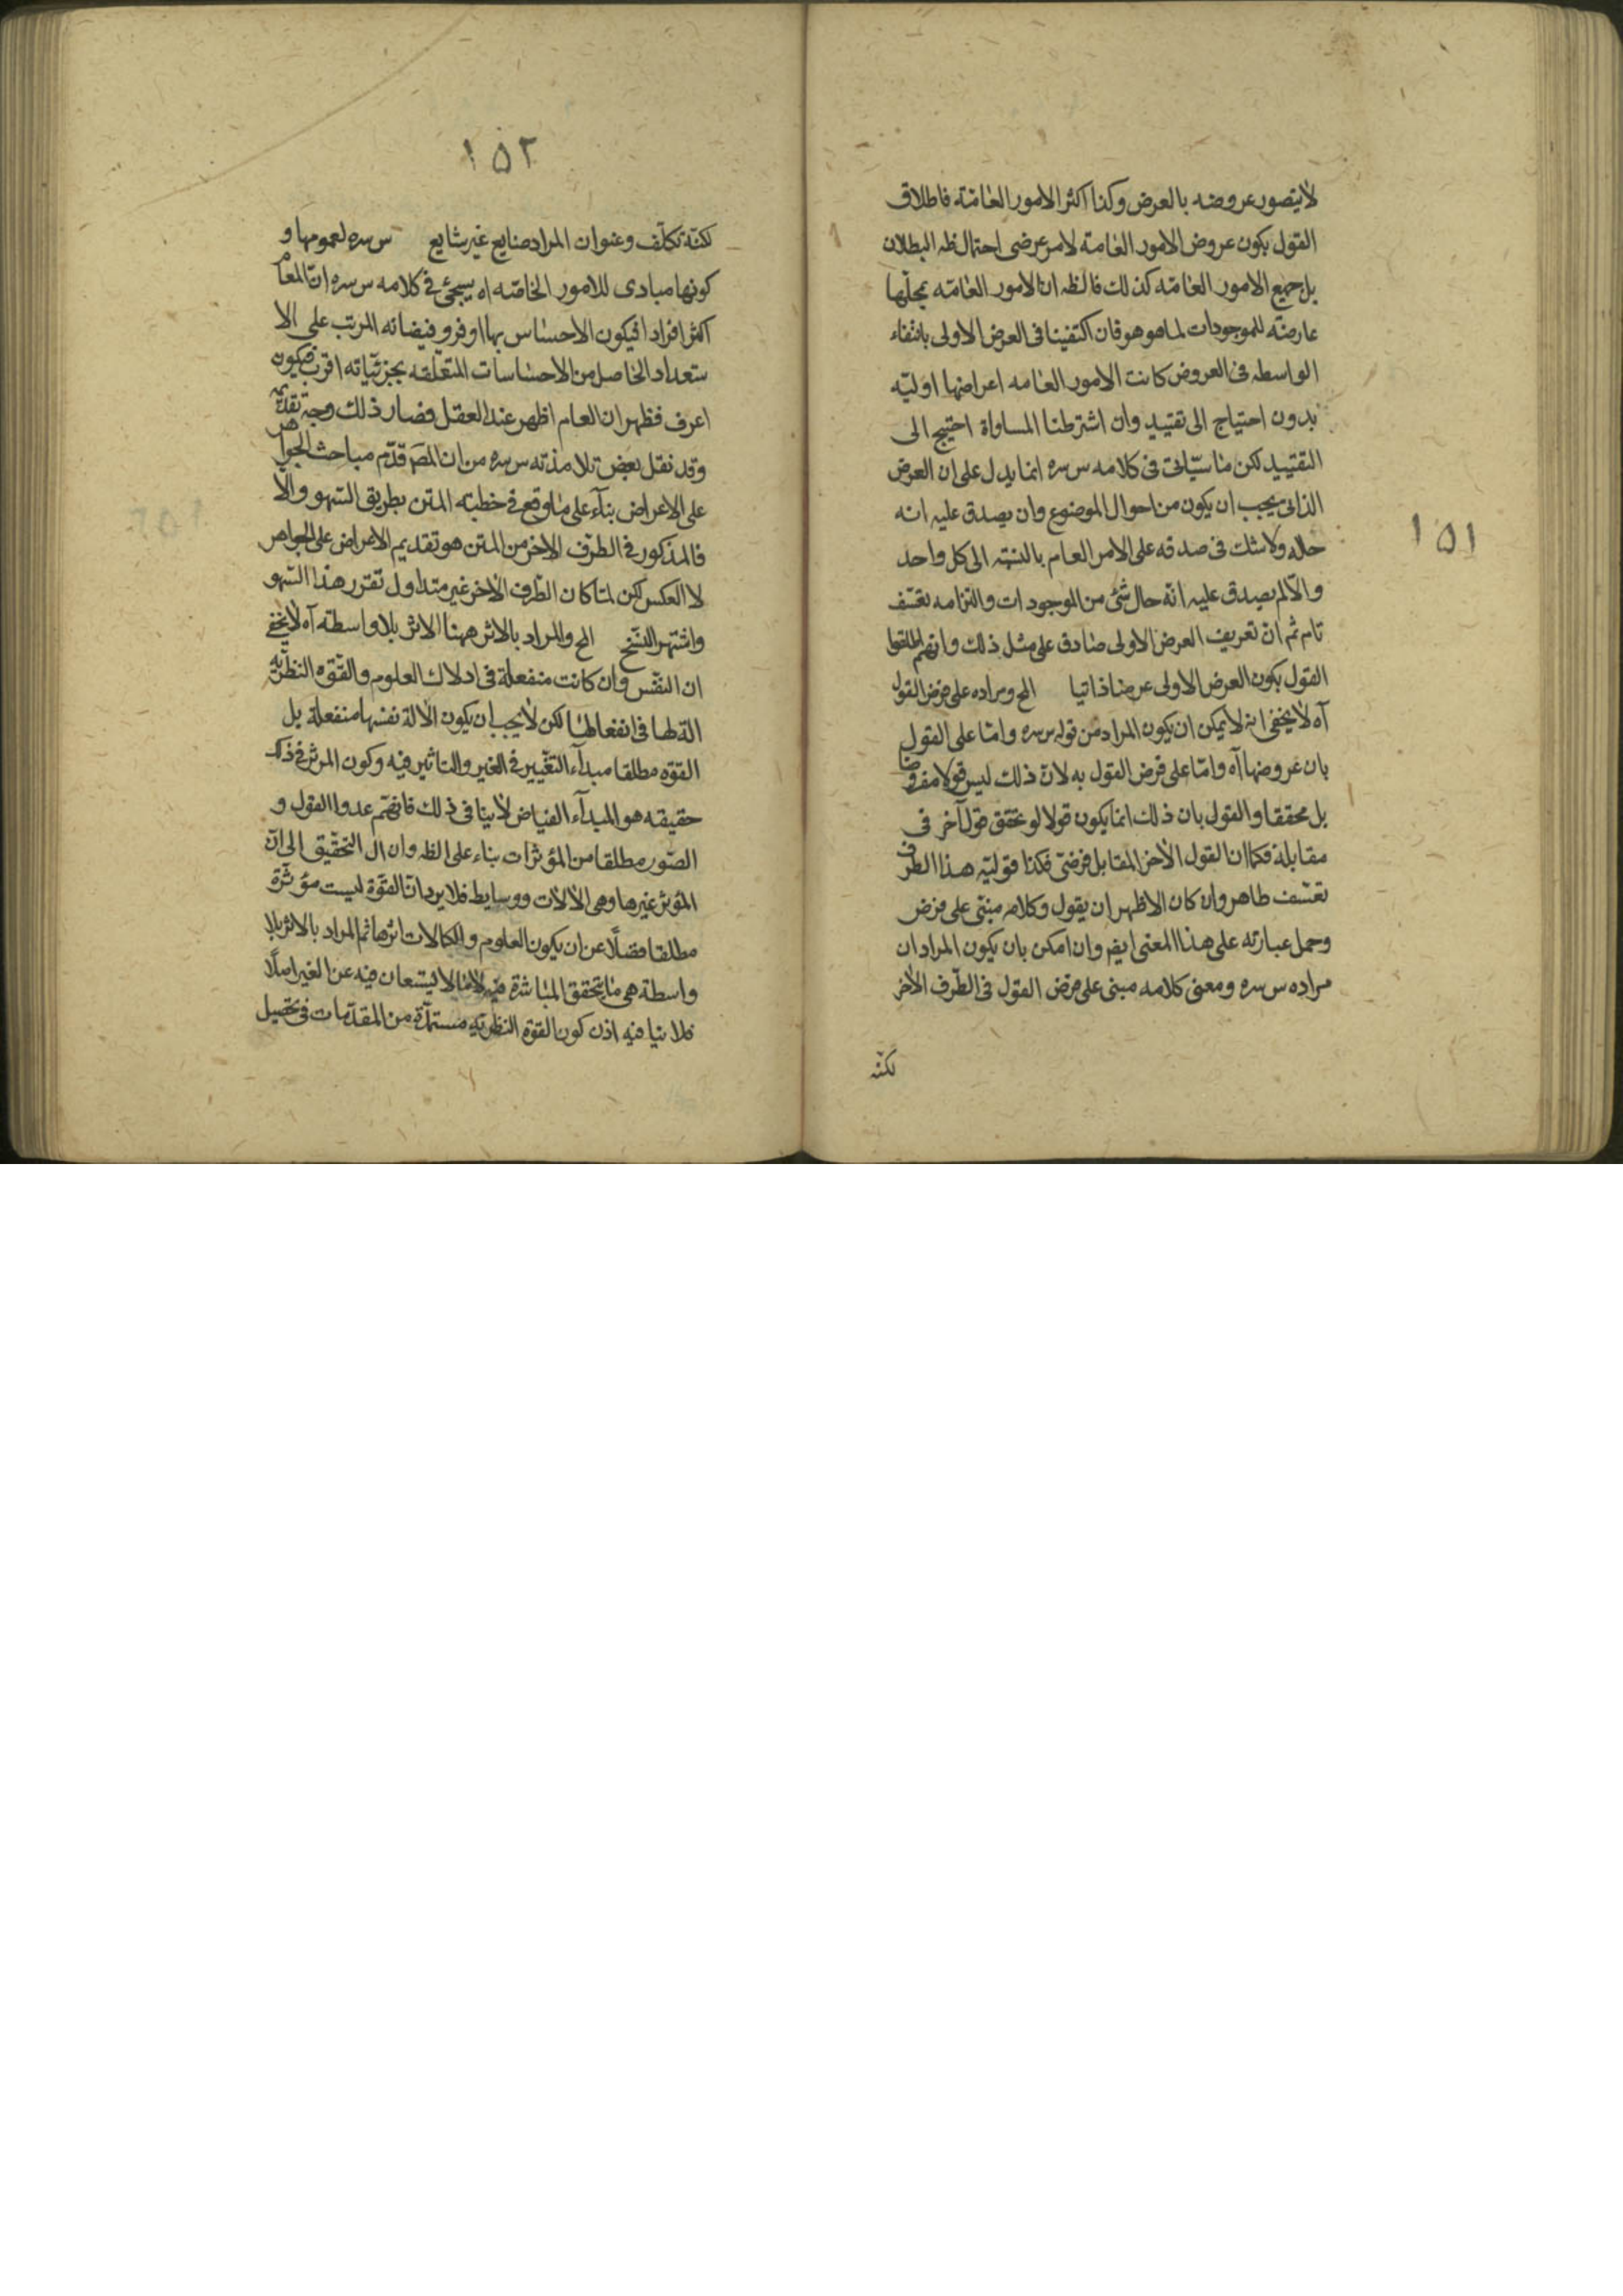 ١٥١
لا يتصور عروضه بالعرض وكذا اكثر الامور العامّة فاطلاق
القول بكون عروض الامور العامة لامر عرضى احتمال ظه البطلان
بل جميع الامور العامّه كذلك فالظه ان الامور العامّه بجلّها
عارضة للموجودات لما هو هو فان اكتفينا فى العرض الاولى بانتفاء
الواسطه فى العروض كانت الامور العامه اعراضها اوليّه
بدون احتياج الى تقييد وان اشترطنا المساواة احتيج الى
التقييد لكن ما سيأتى فى كلامه س سره انما يدل على ان العرض
الذاتى يجب ان يكون من احوال الموضوع وان يصدق عليه انه
حاله ولا شك فى صدقه على الامر العام بالنسبة الى كل واحد
والّا لم يصدق عليه انّه حال شئ من الموجودات والتزامه تعسّف
تام ثم ان تعريف العرض الاولى صادق على مثل ذلك وانهم اطلقوا
القول بكون العرض الاولى عرضا ذاتيا الخ ومراده على فرض القول
آه لا يخفى انه لا يمكن ان يكون المراد من قوله س سره وامّا على القول
بان عروضها آه وامّا على فرض القول به لانّ ذلك ليس قولا مفروضا
بل محققا والقول بان ذلك انما يكون قولا لو تحقق قول آخر فى
مقابلة فكما ان القول الآخر المقابل فرضىّ فكذا قوليّة هذا الطرف
تعسّف ظاهر وان كان الاظهر ان يقول وكلامه مبنىّ على فرض
وحمل عبارته على هذا المعنى ايضا وان امكن بان يكون المراد ان
مراده س سره ومعنى كلامه مبنى على فرض القول فى الطّرف الآخر
لكنّه
١٥٢
لكنّه تكلّف وعنوان المراد صنايع غير شايع س سره لعمومها و
كونها مبادى للامور الخاصّه اه سيجئ فى كلامه س سره ان العام
اكثر افرادا فيكون الاحساس بها اوفر وفيضانه المرتب على الا
ستعداد الحاصل من الاحساسات المتعلّقه بجزئيّاته اقرب فيكون
اعرف فظهر ان العام اظهر عند العقل فصار ذلك وجه تقديمه
وقد نقل بعض تلامذته س سره من ان المصَ قدّم مباحث الجواهر
على الاعراض بناءً على ما وقع فى خطبة المتن بطريق السّهو والّا
فالمذكور فى الطرف الآخر من المتن هو تقديم الاعراض على الجواهر
لا العكس لكن لما كان الطّرف الآخر غير متداول تقرر هذا السّهو
واشتهر النسّخ الخ والمراد بالاثر ههنا الاثر بلا واسطة آه لا يخفى
ان النفس وان كانت منفعلة فى ادراك العلوم والقوّه النظريّه
الة لها فى انفعالها لكن لا يجب ان يكون الآلة نفسها منفعلة بل
القوّه مطلقا مبدأ التغيير فى الغير والتاثير فيه وكون المؤثر فى ذلك
حقيقه هو المبدأ الفياض لا ينافى ذلك فانهم عدوا القول و
الصّوره مطلقا من المؤثرات بناء على الظه وان ال التحقيق الى انّ
المؤثر غيرها وهى الآلات ووسايط فلا يرد ان القوّة ليست مؤثرة
مطلقا فضلًا عن ان يكون العلوم والكمالات اثرها ثم المراد بالاثر بلا
واسطة هى ما يتحقق المباشرة فيه لا ما لا يستعان فيه عن الغير اصلًا
فلا ينافيه اذن كون القوة النظريّه مستمدّة من المقدّمات فى تحصيل